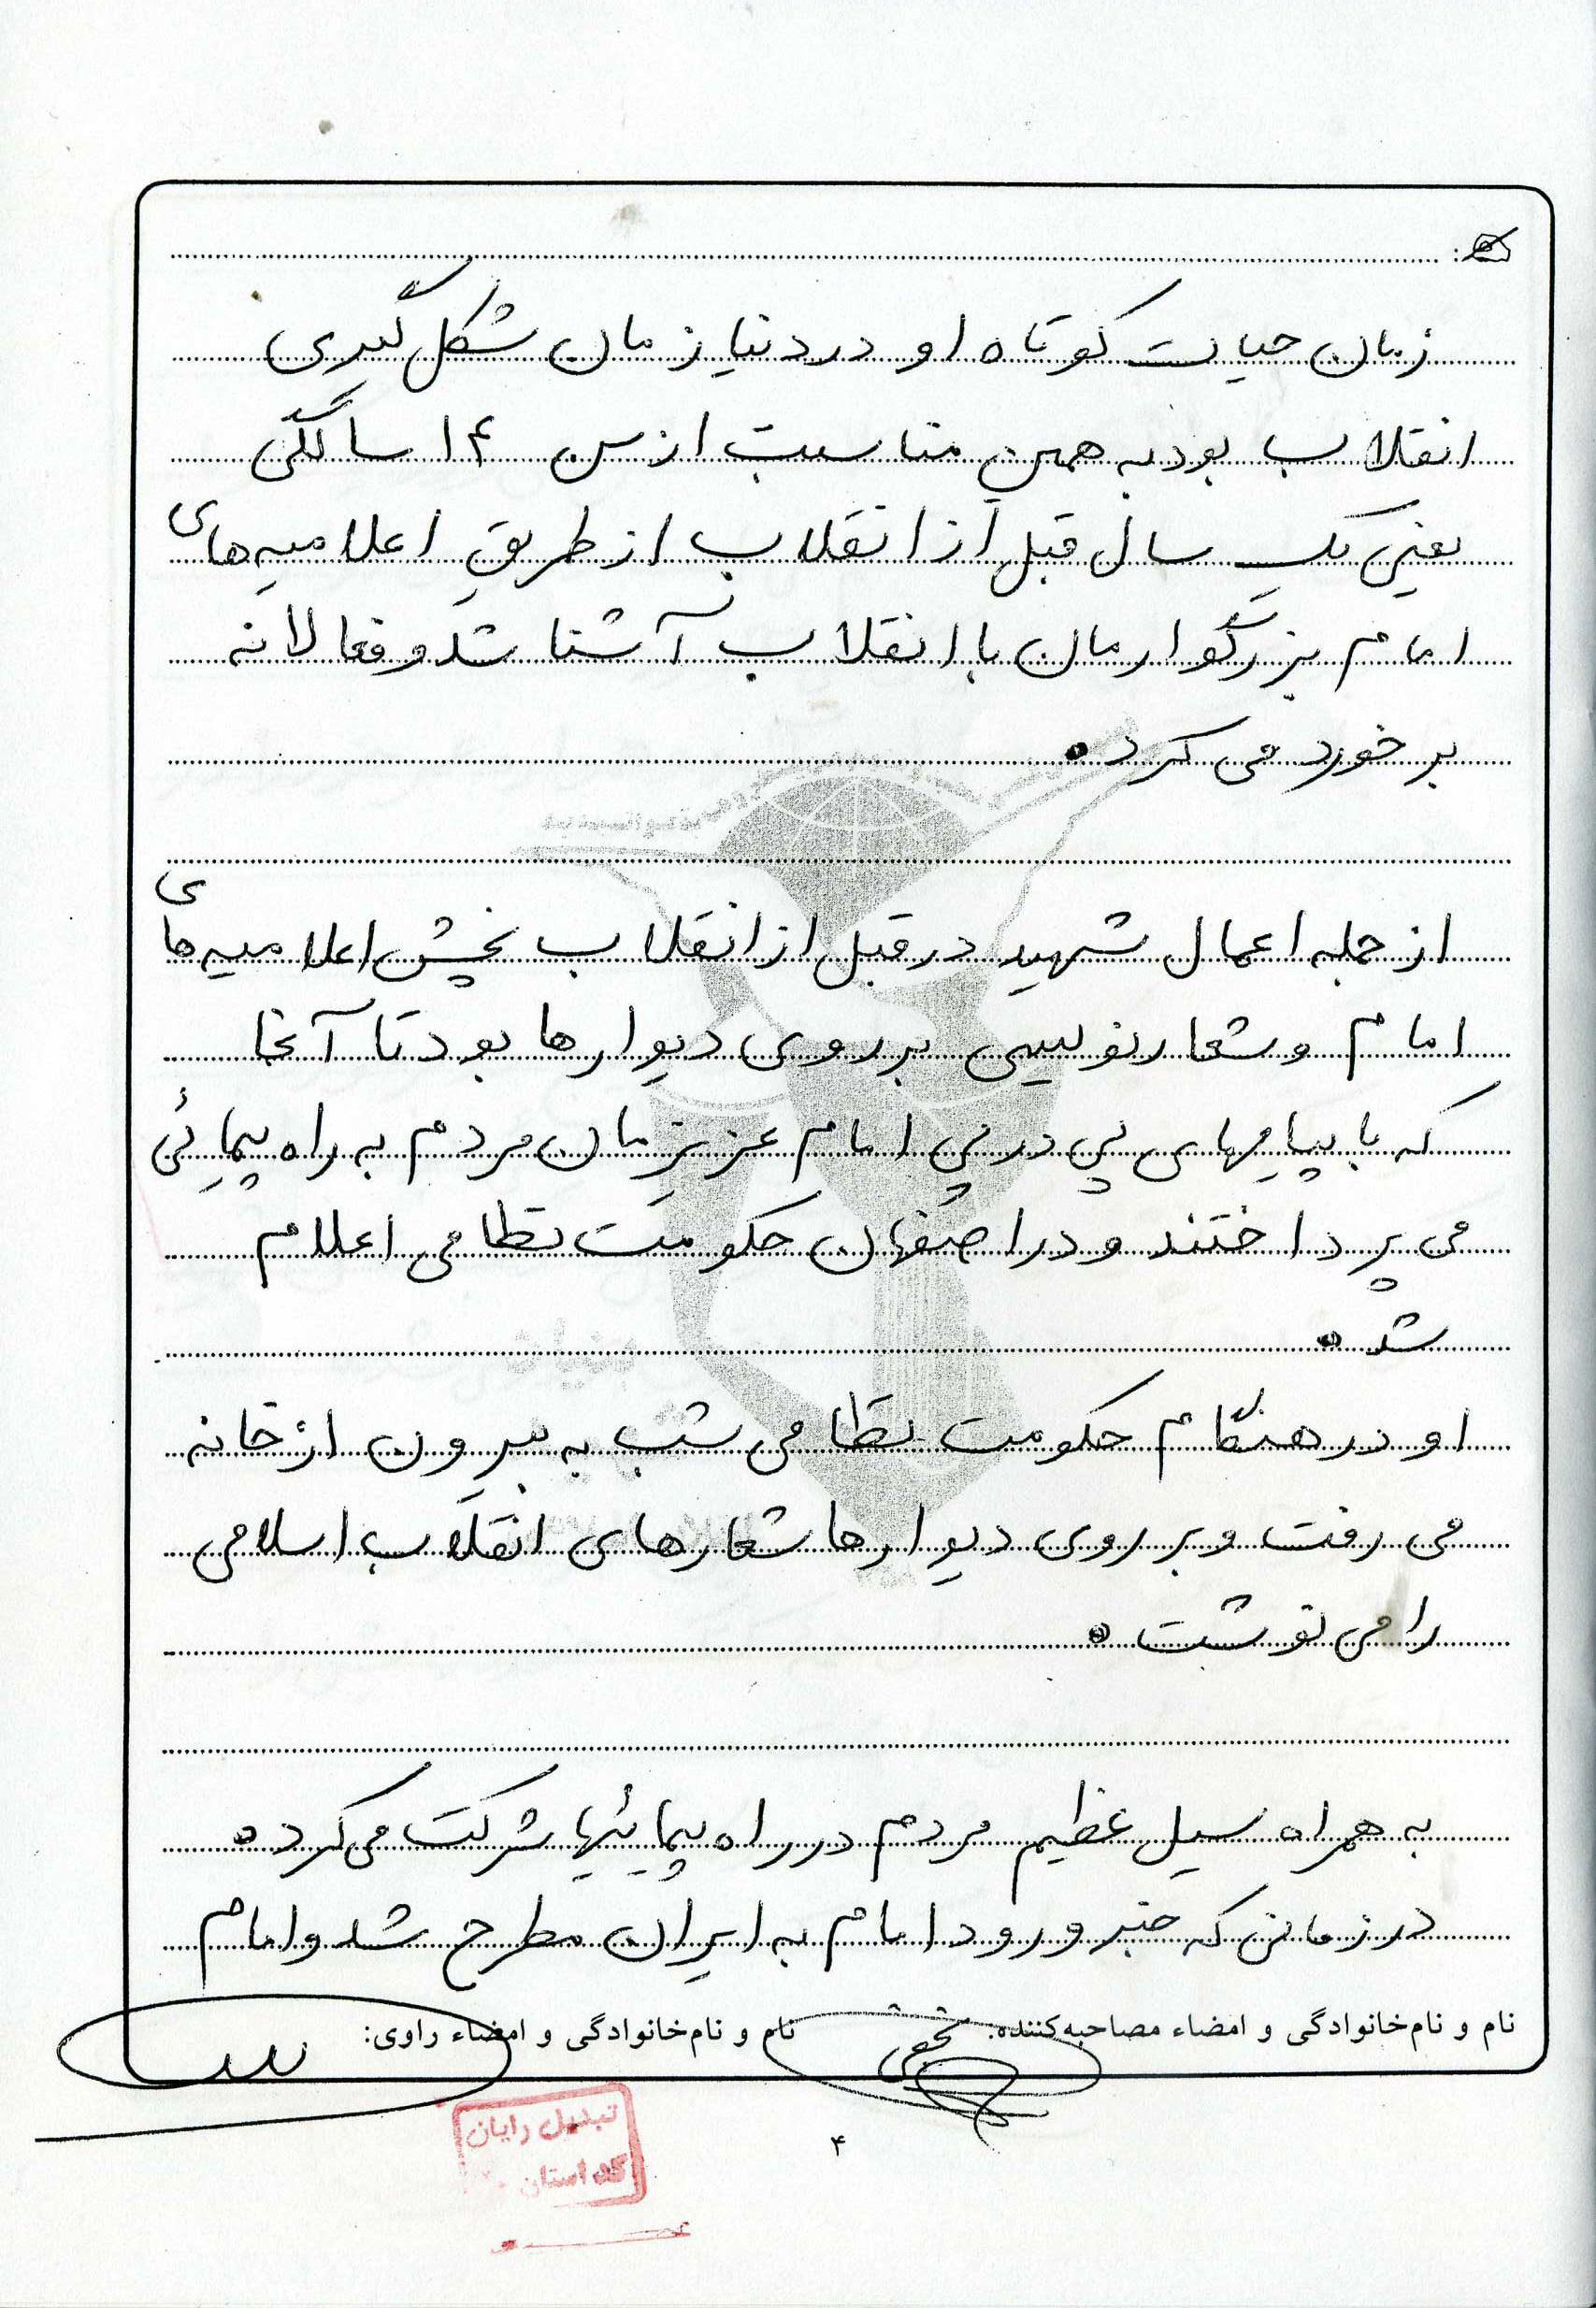 زمان حیات کوتاه او در دنیا زمان شکل گیری
انقلاب بود به همین مناسبت از سن ۱۴ سالگی
یعنی یک سال قبل از انقلاب از طریق اعلامیه های
امام بزرگوارمان با انقلاب آشنا شد و فعالانه
برخورد می کرد.
از جمله اعمال شهید در قبل از انقلاب پخش اعلامیه های
امام و شعار نویسی بر روی دیوارها بود تا آنجا
که با پیامهای پی در پی امام عزیزمان مردم به راه پیمائی
می پرداختند و در اصفهان حکومت نظامی اعلام
شد.
او در هنگام حکومت نظامی شب به بیرون از خانه
می رفت و بر روی دیوارها شعارهای انقلاب اسلامی
را می نوشت.
به همراه سیل عظیم مردم در راه پیمائیها شرکت می کرد.
در زمانی که خبر ورود امام به ایران مطرح شد و امام
نام و نام‌خانوادگی و امضاء مصاحبه‌کننده: نام و نام‌خانوادگی و امضاء راوی:
تبدیل رایان
کد استان
۴